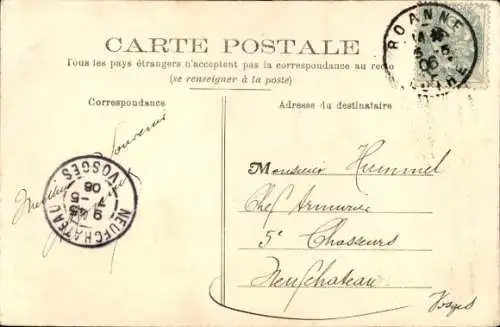 CARTE POSTALE
Tous les pays étrangers n'acceptent pas la correspondance au recto
(se renseigner à la poste)
Correspondance
Adresse du destinataire
ROANNE
06
LOIRE
souvenir
NEUFCHATEAU
9 45
7 -5
06
VOSGES
Monsieur Hummel
Chef Armurier
5e Chasseurs
Neufchateau
Vosges